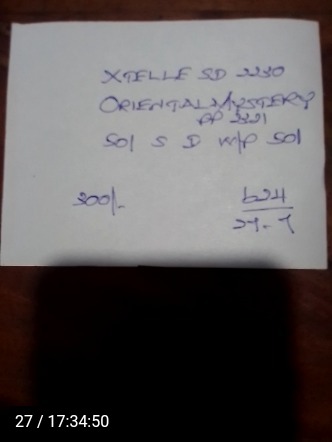 XTELLE SD 2230
ORIENTAL MYSTERY
PP 2321
501 S D W/P 501
300/-
624
27-7
27 / 17:34:50